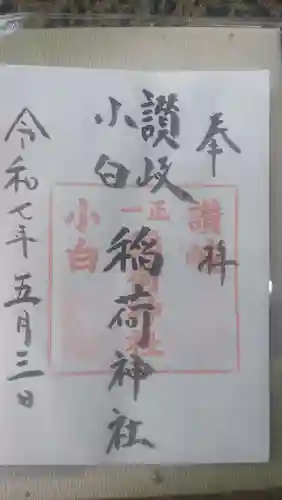 奉拝
讃岐
小白
稲荷神社
令和七年五月三日
讃岐
正一
小白